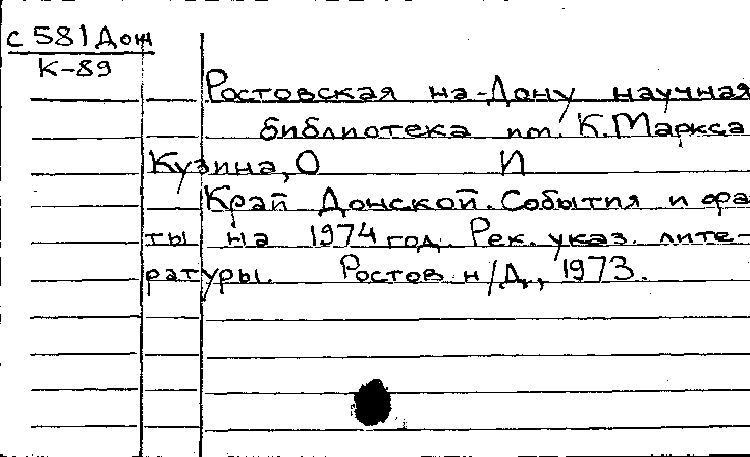 с 581 Дон
К-89
Ростовская на-Дону научная
библиотека им. К. Маркса
Кузина, О И
Край Донской. События и фа
ты на 1974 год. Рек. указ. лите-
ратуры. Ростов н/Д., 1973.